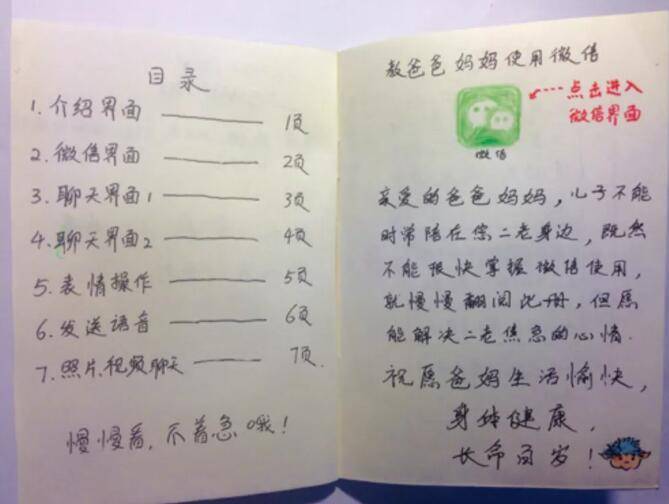 目录
1. 介绍界面 —— 1页
2. 微信界面 —— 2页
3. 聊天界面1 —— 3页
4. 聊天界面2 —— 4页
5. 表情操作 —— 5页
6. 发送语音 —— 6页
7. 照片、视频聊天 —— 7页.
慢慢看,不着急哦!
教爸爸妈妈使用微信
点击进入
微信界面
微信
亲爱的爸爸妈妈,儿子不能
时常陪在您二老身边,既然
不能很快掌握微信使用,
就慢慢翻阅此册,但愿
能解决二老焦急的心情.
祝愿爸妈生活愉快,
身体健康,
长命百岁!